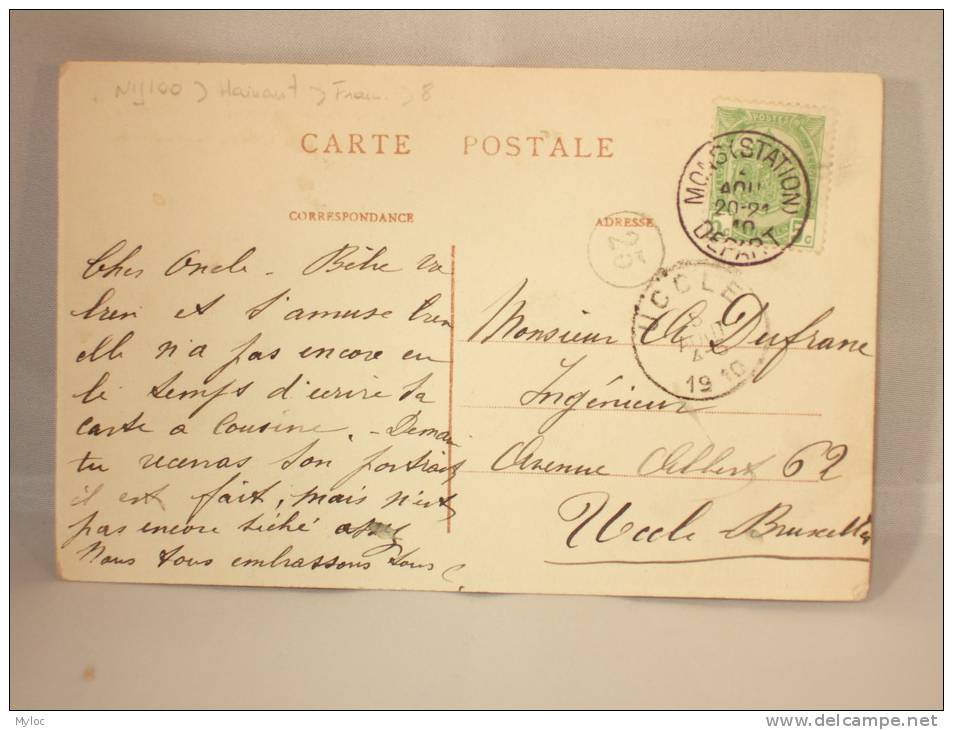 CARTE POSTALE
CORRESPONDANCE
ADRESSE
POSTES
5 C
MONS (STATION)
AOU
20-21
10
DEPART
25
UCCLE
AOUT
1910
Cher Oncle - Bébé va
bien et s'amuse bien
elle n'a pas encore eu
le temps d'écrire sa
carte à Cousine. - Demain
tu recevras son portrait
il est fait, mais n'est
pas encore séché
Nous vous embrassons tous
Monsieur A Dufrane
Ingénieur
Avenue Albert 62
Uccle Bruxelles
Myloc
www.delcampe.net